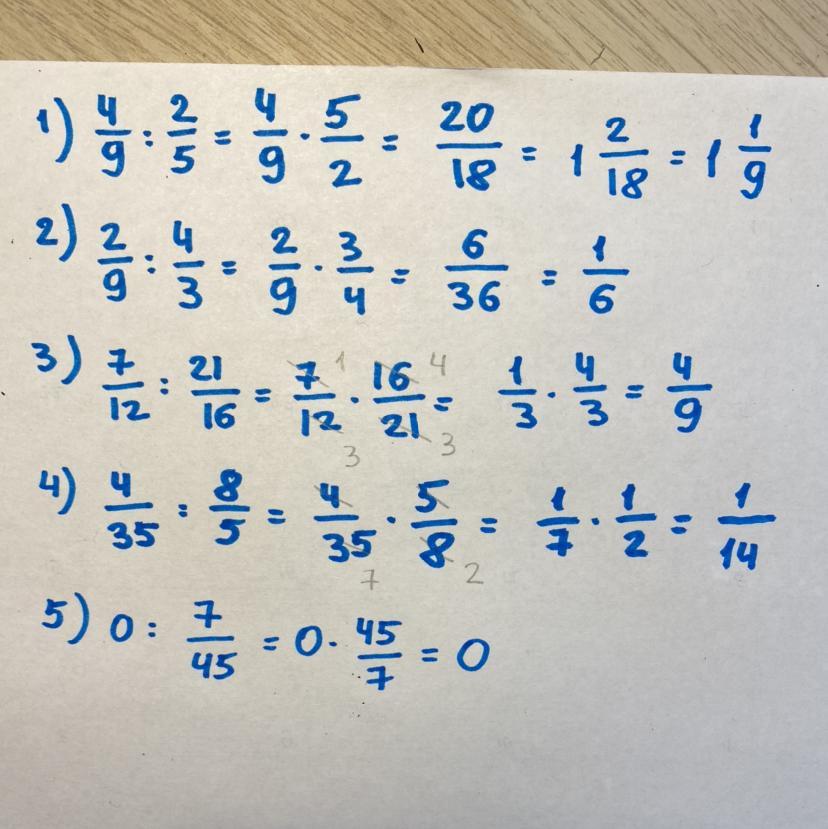 1) 4/9 : 2/5 = 4/9 · 5/2 = 20/18 = 1 2/18 = 1 1/9
2) 2/9 : 4/3 = 2/9 · 3/4 = 6/36 = 1/6
3) 7/12 : 21/16 = 7/12 · 16/21 = 1/3 · 4/3 = 4/9
1 4
3 3
4) 4/35 : 8/5 = 4/35 · 5/8 = 1/7 · 1/2 = 1/14
7 2
5) 0 : 7/45 = 0 · 45/7 = 0